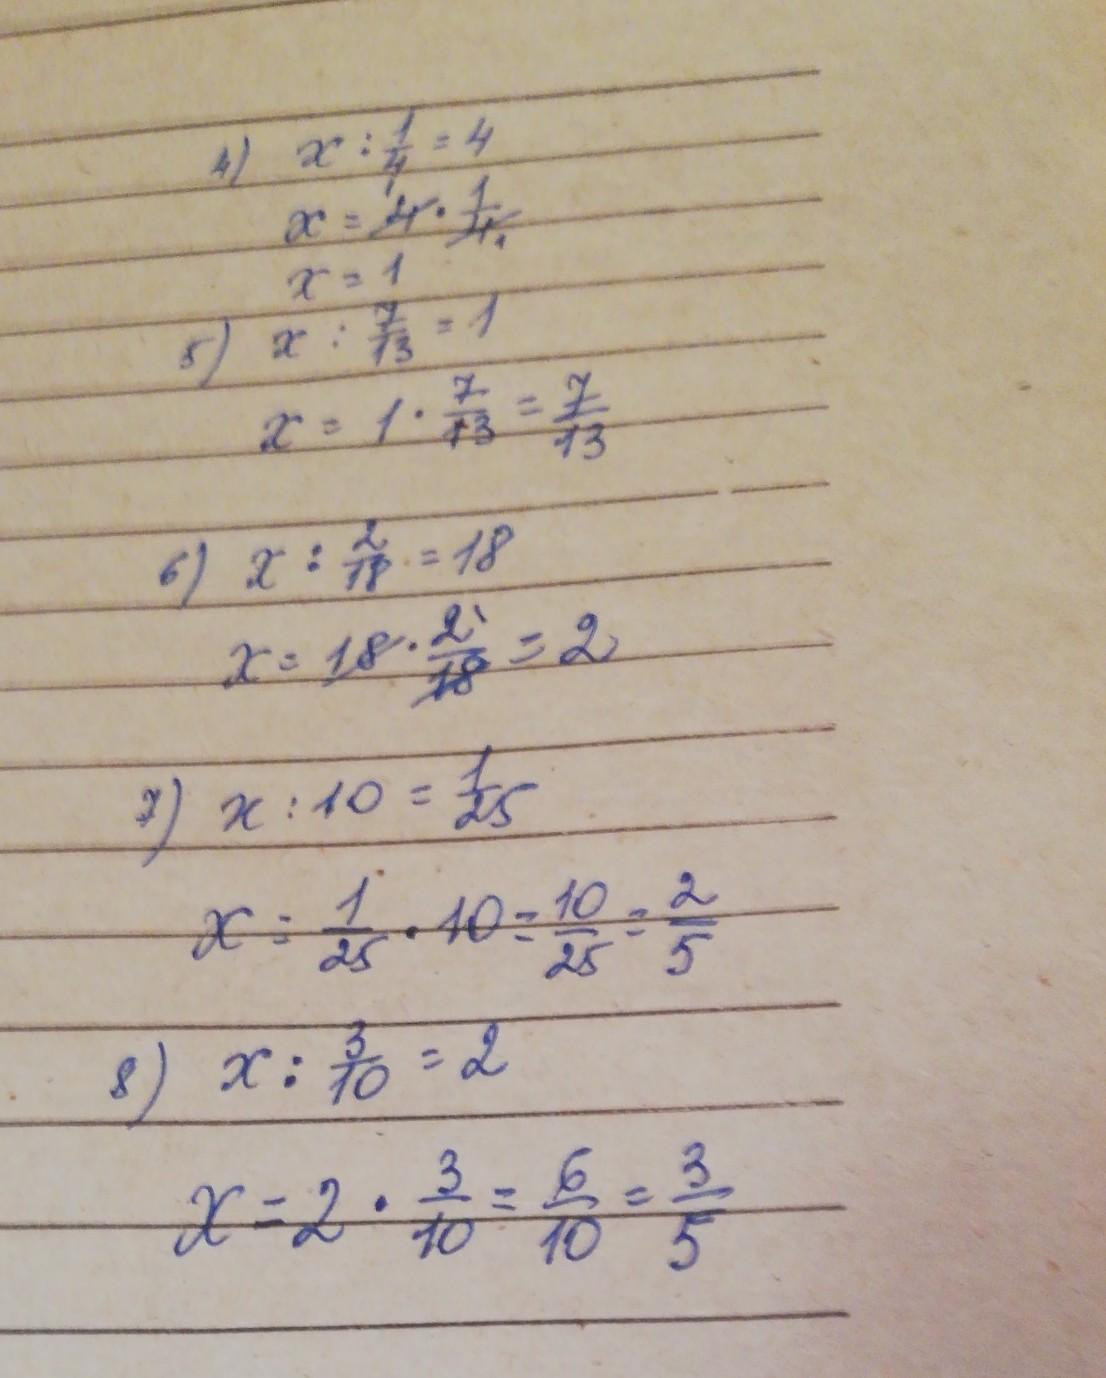 4) x : 1/4 = 4
x = 4 · 1/4
x = 1
5) x : 7/13 = 1
x = 1 · 7/13 = 7/13
6) x : 2/18 = 18
x = 18 · 2/18 = 2
7) x : 10 = 1/25
x = 1/25 · 10 = 10/25 = 2/5
8) x : 3/10 = 2
x = 2 · 3/10 = 6/10 = 3/5